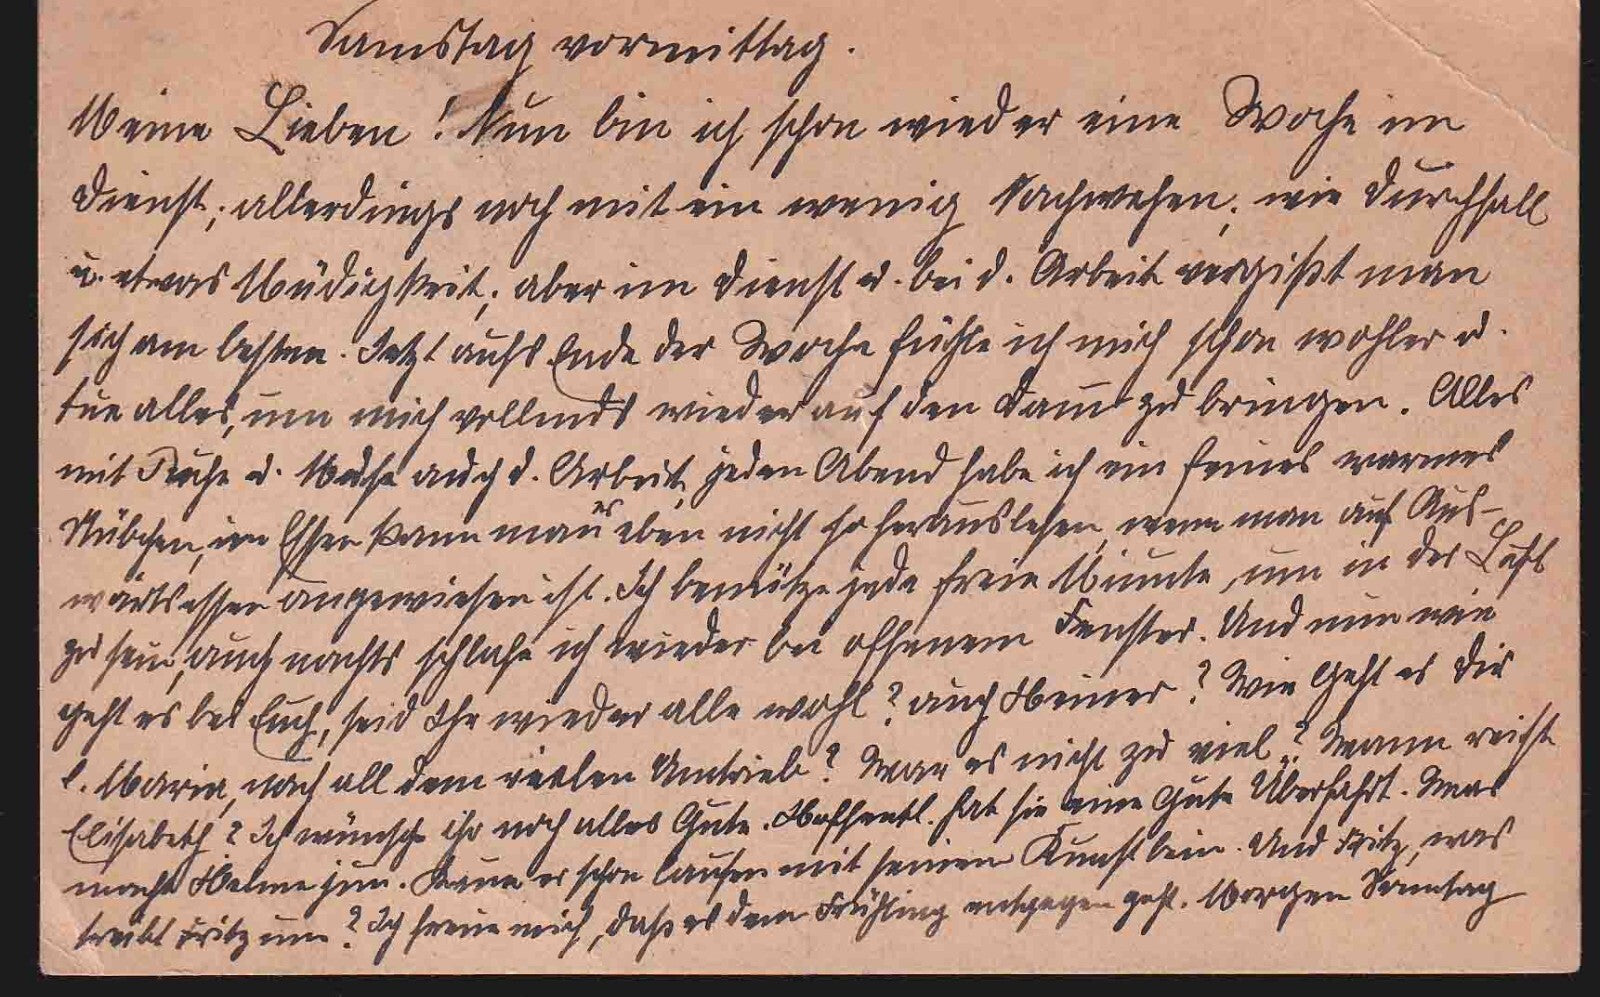 Samstag vormittag.
Meine Lieben! Nun bin ich schon wieder eine Woche im
Dienst, allerdings noch mit ein wenig Nachwehen, wie Durchfall
u. etwas Müdigkeit, aber im Dienst u. bei d. Arbeit vergißt man
sich am besten. Jetzt aufs Ende der Woche fühle ich mich schon wohler u.
tue alles, um mich vollends wieder auf den Damm zu bringen. Alles
mit Ruhe u. Muße auch d. Arbeit, jeden Abend habe ich ein feines warmes
Stübchen, im Essen kann man es eben nicht so herauslesen, wenn man auf Aus-
wärtsessen angewiesen ist. Ich benütze jede freie Minute, um in der Luft
zu sein, auch nachts schlafe ich wieder bei offenem Fenster. Und nun wie
geht es bei Euch, seid Ihr wieder alle wohl? auch Heiner? Wie geht es Dir
l. Maria, nach all dem vielen Umtrieb? War es nicht zu viel? Wann reist
Elisabeth? Ich wünsche ihr noch alles Gute. Hoffentl. hat sie eine gute Überfahrt. Was
macht Helme jun. Kann er schon laufen mit seinem Kunstbein. Und Fritz, was
treibt Fritz um? Ich freue mich, daß es dem Frühling entgegen geht. Morgen Sonntag